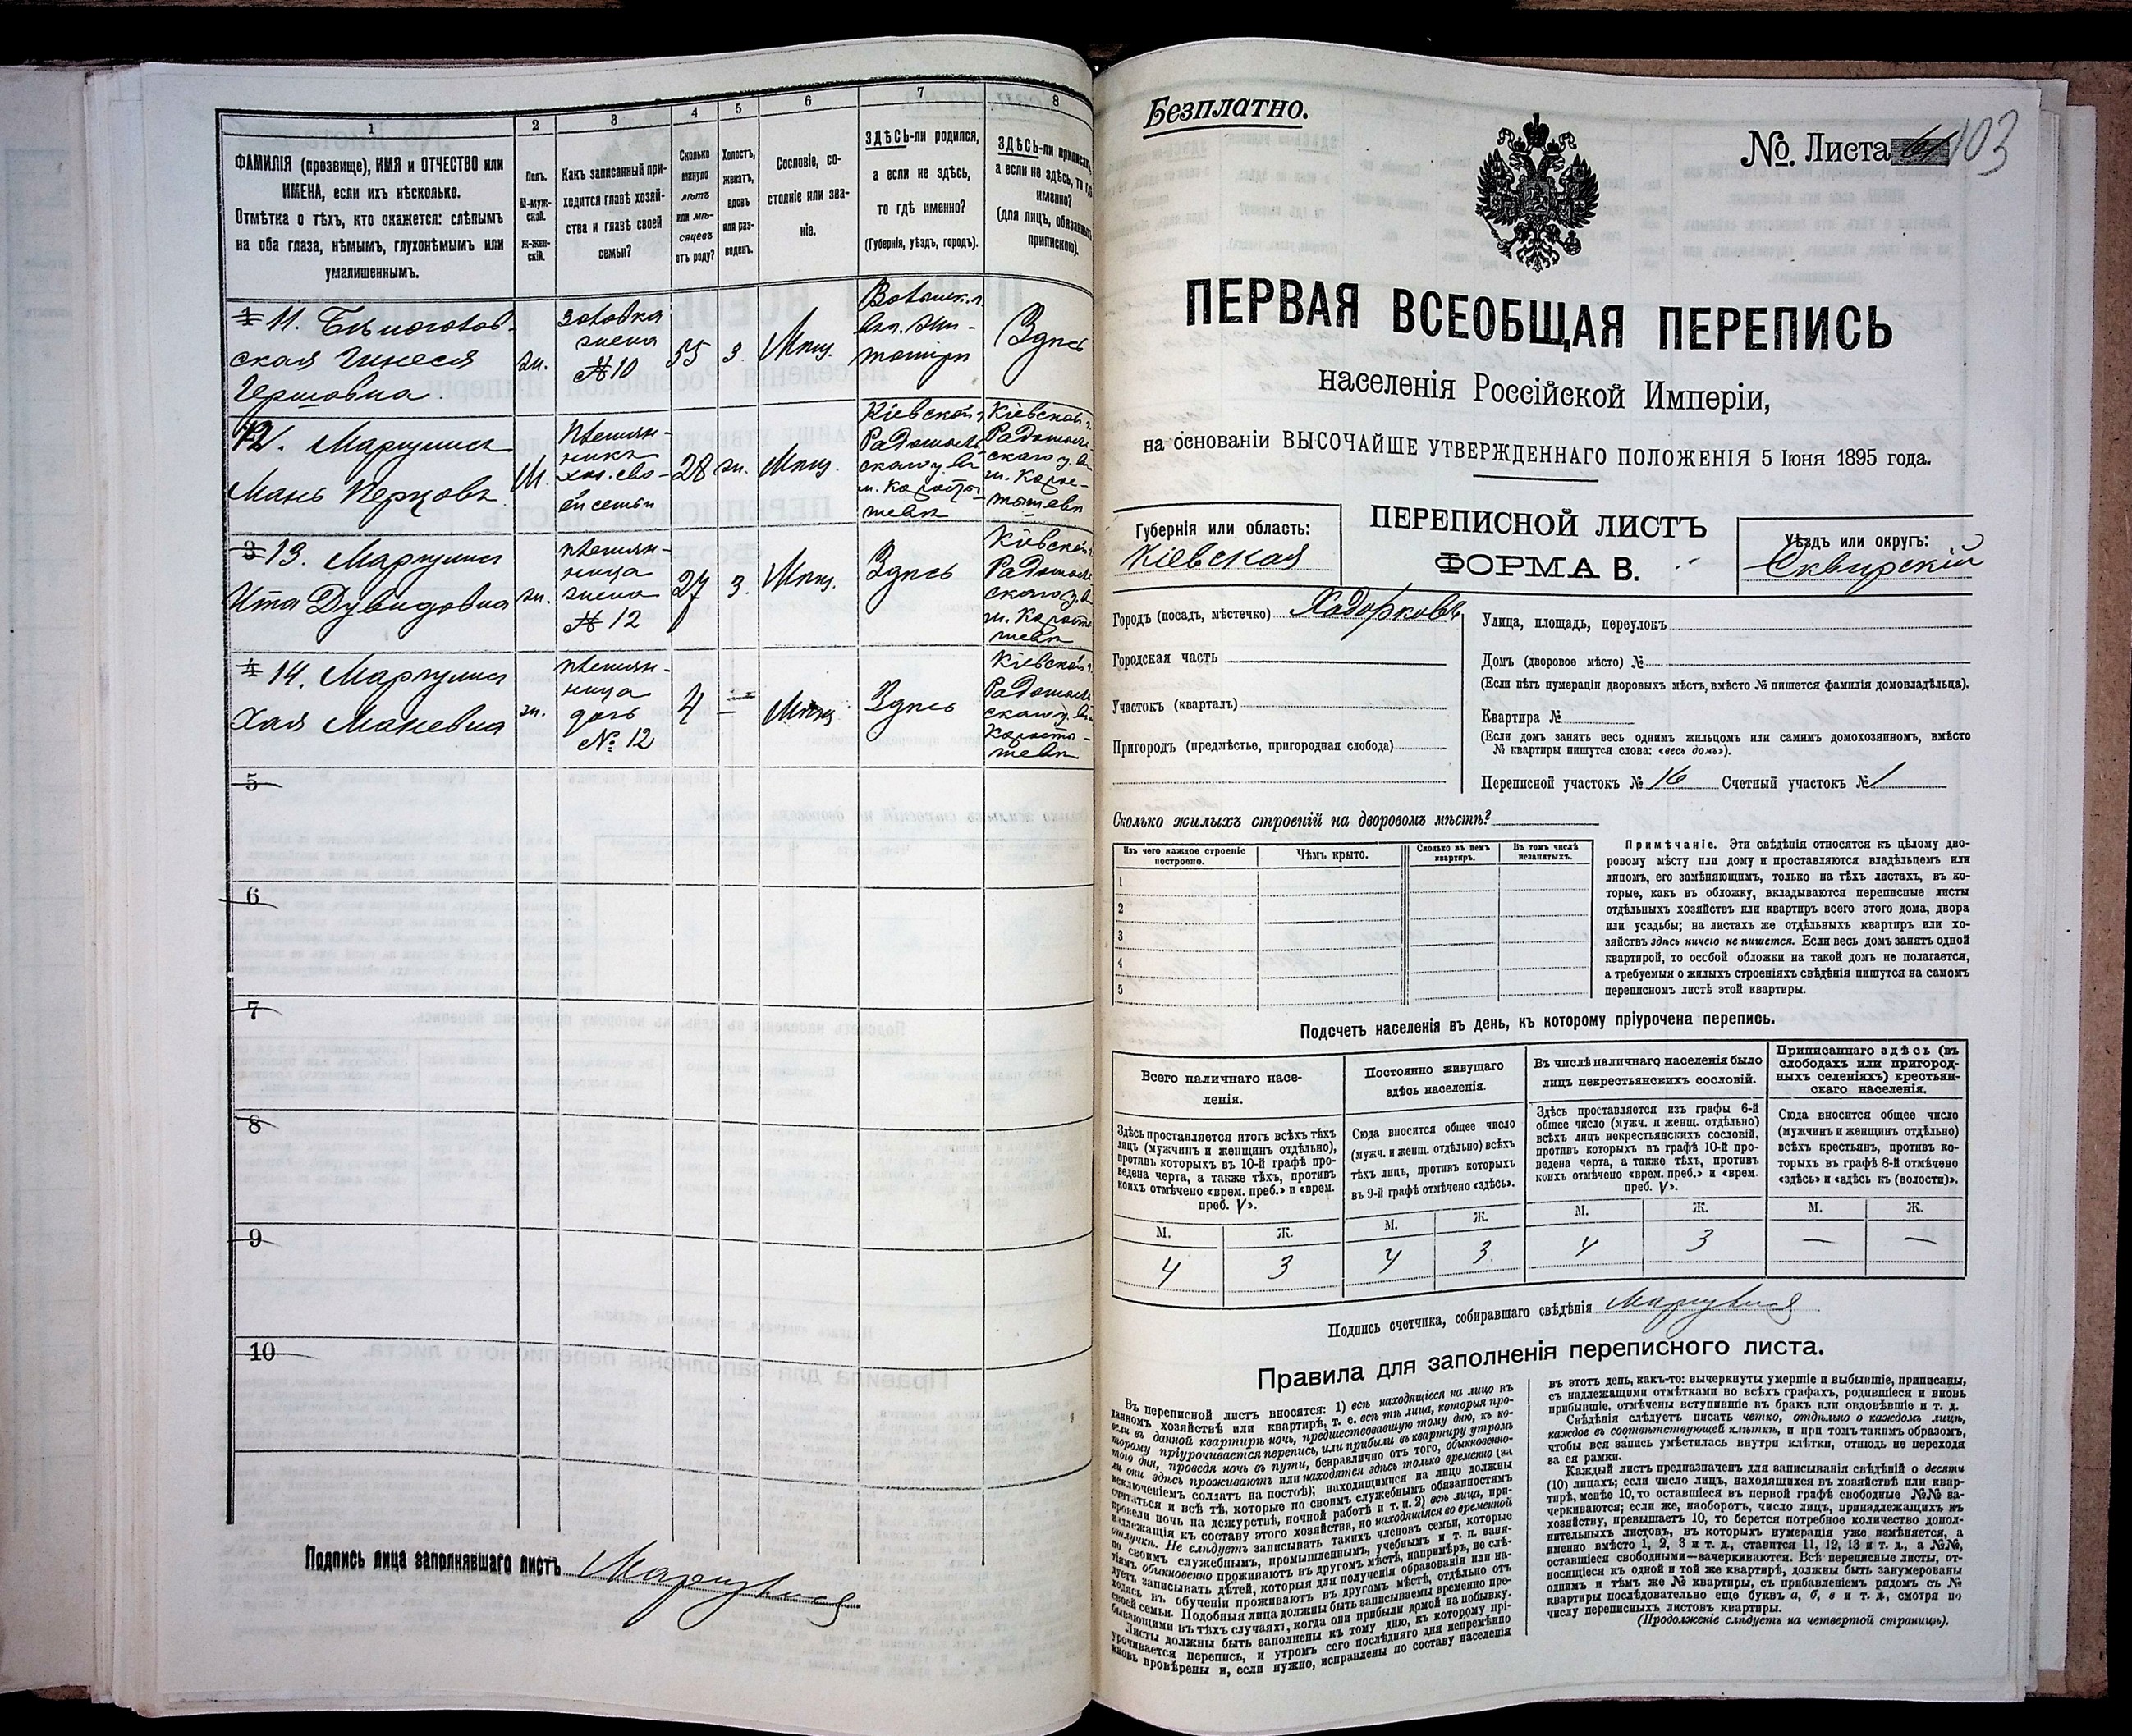 1
ФАМИЛІЯ (прозвище), ИМЯ и ОТЧЕСТВО или
ИМЕНА, если ихъ нѣсколько.
Отмѣтка о тѣхъ, кто окажется: слѣпымъ
на оба глаза, нѣмымъ, глухонѣмымъ или
умалишеннымъ.
2
Полъ.
М-муж-
ской.
Ж-жен-
скій.
3
Какъ записанный при-
ходится главѣ хозяй-
ства и главѣ своей
семьи?
4
Сколько
минуло
лѣтъ
или мѣ-
сяцевъ
отъ роду?
5
Холостъ,
женатъ,
вдовъ
или раз-
веденъ.
6
Сословіе, со-
стояніе или зва-
ніе.
7
ЗДѢСЬ-ли родился,
а если не здѣсь,
то гдѣ именно?
(Губернія, уѣздъ, городъ).
8
ЗДѢСЬ-ли приписанъ,
а если не здѣсь, то гдѣ
именно?
(для лицъ, обязанныхъ
припискою).
11.
ская
Гершовна
ж.
жена
№ 10
55
з.
Мѣщ.
Здѣсь
12. Маргулисъ
М.
племян-
никъ
28
ж.
Мѣщ.
Кіевской г.
Радомысль-
скаго у. въ
Кіевской г.
Радомысль-
скаго у. въ
13. Маргулисъ
Ита Дувидовна
ж.
племян-
ница
жена
№ 12
27
з.
Мѣщ.
Здѣсь
Кіевской г.
Радомысль-
скаго у. въ
14. Маргулисъ
Хая Маневна
ж.
племян-
ница
дочь
№ 12
4
—
Мѣщ.
Здѣсь
Кіевской г.
Радомысль-
скаго у. въ
5
6
7
8
9
10
Подпись лица заполнявшаго листъ Маргулисъ
Безплатно.
№. Листа 103
ПЕРВАЯ ВСЕОБЩАЯ ПЕРЕПИСЬ
населенія Россійской Имперіи,
на основаніи ВЫСОЧАЙШЕ УТВЕРЖДЕННАГО ПОЛОЖЕНІЯ 5 Іюня 1895 года.
Губернія или область:
Кіевская
ПЕРЕПИСНОЙ ЛИСТЪ
ФОРМА В.
Уѣздъ или округъ:
Сквирскій
Городъ (посадъ, мѣстечко) Ходорковъ
Городская часть
Участокъ (кварталъ)
Пригородъ (предмѣстье, пригородная слобода)
Улица, площадь, переулокъ
Домъ (дворовое мѣсто) №
(Если нѣтъ нумераціи дворовыхъ мѣстъ, вмѣсто № пишется фамилія домовладѣльца).
Квартира №
(Если домъ занятъ весь однимъ жильцомъ или самимъ домохозяиномъ, вмѣсто
№ квартиры пишутся слова: «весь домъ»).
Переписной участокъ № 16 Счетный участокъ № 1
Сколько жилыхъ строеній на дворовомъ мѣстѣ?
Изъ чего каждое строеніе
построено.
Чѣмъ крыто.
Сколько въ немъ
квартиръ.
Въ томъ числѣ
незанятыхъ.
1
2
3
4
5
Примѣчаніе. Эти свѣдѣнія относятся къ цѣлому дво-
ровому мѣсту или дому и проставляются владѣльцемъ или
лицомъ, его замѣняющимъ, только на тѣхъ листахъ, въ ко-
торые, какъ въ обложку, вкладываются переписные листы
отдѣльныхъ хозяйствъ или квартиръ всего этого дома, двора
или усадьбы; на листахъ же отдѣльныхъ квартиръ или хо-
зяйствъ здѣсь ничего не пишется. Если весь домъ занятъ одной
квартирой, то особой обложки на такой домъ не полагается,
а требуемыя о жилыхъ строеніяхъ свѣдѣнія пишутся на самомъ
переписномъ листѣ этой квартиры.
Подсчетъ населенія въ день, къ которому пріурочена перепись.
Всего наличнаго насе-
ленія.
Постоянно живущаго
здѣсь населенія.
Въ числѣ наличнаго населенія было
лицъ некрестьянскихъ сословій.
Приписаннаго здѣсь (въ
слободахъ или пригород-
ныхъ селеніяхъ) крестьян-
скаго населенія.
Здѣсь проставляется итогъ всѣхъ тѣхъ
лицъ (мужчинъ и женщинъ отдѣльно),
противъ которыхъ въ 10-й графѣ про-
ведена черта, а также тѣхъ, противъ
коихъ отмѣчено «врем. преб.» и «врем.
преб. V».
Сюда вносится общее число
(мужч. и женщ. отдѣльно) всѣхъ
тѣхъ лицъ, противъ которыхъ
въ 9-й графѣ отмѣчено «здѣсь».
Здѣсь проставляется изъ графы 6-й
общее число (мужч. и женщ. отдѣльно)
всѣхъ лицъ некрестьянскихъ сословій,
противъ которыхъ въ графѣ 10-й про-
ведена черта, а также тѣхъ, противъ
коихъ отмѣчено «врем. преб.» и «врем.
преб. V».
Сюда вносится общее число
(мужчинъ и женщинъ отдѣльно)
всѣхъ крестьянъ, противъ ко-
торыхъ въ графѣ 8-й отмѣчено
«здѣсь» и «здѣсь къ (волости)».
М. Ж. М. Ж. М. Ж. М. Ж.
4 3 4 3 4 3 — —
Подпись счетчика, собиравшаго свѣдѣнія Маргулисъ
Правила для заполненія переписного листа.
Въ переписной листъ вносятся: 1) всѣ находящіеся на лицо въ
данномъ хозяйствѣ или квартирѣ, т. е. всѣ тѣ лица, которыя про-
вели въ данной квартирѣ ночь, предшествовавшую тому дню, къ ко-
торому пріурочивается перепись, или прибыли въ квартиру утромъ
того дня, проведя ночь въ пути, безразлично отъ того, обыкновенно-
ли они здѣсь проживаютъ или находятся здѣсь только временно (за
исключеніемъ солдатъ на постоѣ); находящимися на лицо должны
считаться и всѣ тѣ, которые по своимъ служебнымъ обязанностямъ
провели ночь на дежурствѣ, ночной работѣ и т. п. 2) всѣ лица, при-
надлежащія къ составу этого хозяйства, но находящіяся во временной
отлучкѣ. Не слѣдуетъ записывать такихъ членовъ семьи, которые
по своимъ служебнымъ, промышленнымъ, учебнымъ и т. п. заня-
тіямъ обыкновенно проживаютъ въ другомъ мѣстѣ, напримѣръ, не слѣ-
дуетъ записывать дѣтей, которыя для полученія образованія или на-
ходясь въ обученіи проживаютъ въ другомъ мѣстѣ, отдѣльно отъ
своей семьи. Подобныя лица должны быть записываемы временно про-
бывающими въ тѣхъ случаяхъ, когда они прибыли домой на побывку.
Листы должны быть заполнены къ тому дню, къ которому прі-
урочивается перепись, и утромъ сего послѣдняго дня непремѣнно
вновь провѣрены и, если нужно, исправлены по составу населенія
въ этотъ день, какъ-то: вычеркнуты умершіе и выбывшіе, приписаны,
съ надлежащими отмѣтками во всѣхъ графахъ, родившіеся и вновь
прибывшіе, отмѣчены вступившіе въ бракъ или овдовѣвшіе и т. д.
Свѣдѣнія слѣдуетъ писать четко, отдѣльно о каждомъ лицѣ,
каждое въ соотвѣтствующей клѣткѣ, и при томъ такимъ образомъ,
чтобы вся запись умѣстилась внутри клѣтки, отнюдь не переходя
за ея рамки.
Каждый листъ предназначенъ для записыванія свѣдѣній о десяти
(10) лицахъ; если число лицъ, находящихся въ хозяйствѣ или квар-
тирѣ, менѣе 10, то оставшіеся въ первой графѣ свободные №№ за-
черкиваются; если же, наоборотъ, число лицъ, принадлежащихъ къ
хозяйству, превышаетъ 10, то берется потребное количество допол-
нительныхъ листовъ, въ которыхъ нумерація уже измѣняется, а
именно вмѣсто 1, 2, 3 и т. д., ставится 11, 12, 13 и т. д., а №№,
оставшіеся свободными—зачеркиваются. Всѣ переписные листы, от-
носящіеся къ одной и той же квартирѣ, должны быть занумерованы
однимъ и тѣмъ же № квартиры, съ прибавленіемъ рядомъ съ №
квартиры послѣдовательно еще буквъ а, б, в и т. д., смотря по
числу переписныхъ листовъ квартиры.
(Продолженіе слѣдуетъ на четвертой страницѣ).